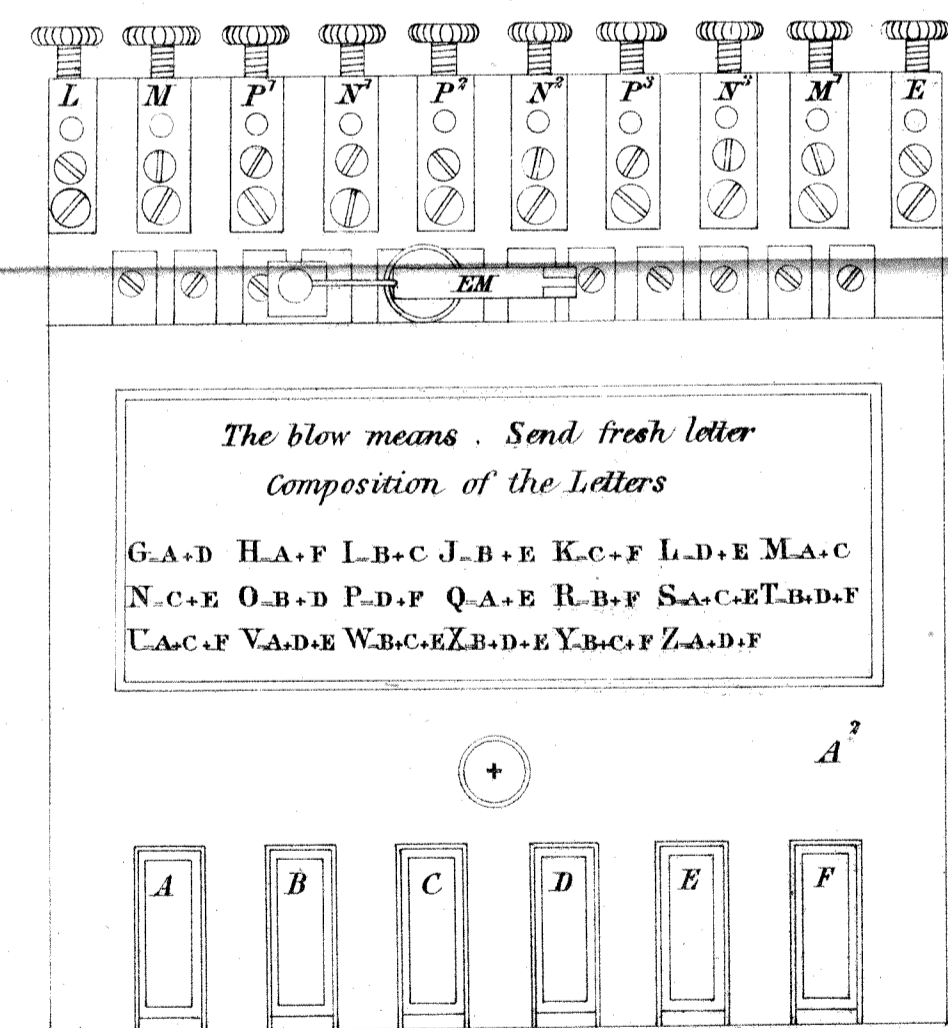 L M P¹ N¹ P² N² P³ N³ M¹ E
EM
The blow means . Send fresh letter
Composition of the Letters
G=A+D H=A+F I=B+C J=B+E K=C+F L=D+E M=A+C
N=C+E O=B+D P=D+F Q=A+E R=B+F S=A+C+E T=B+D+F
U=A+C+F V=A+D+E W=B+C+E X=B+D+E Y=B+C+F Z=A+D+F
A²
+
A B C D E F